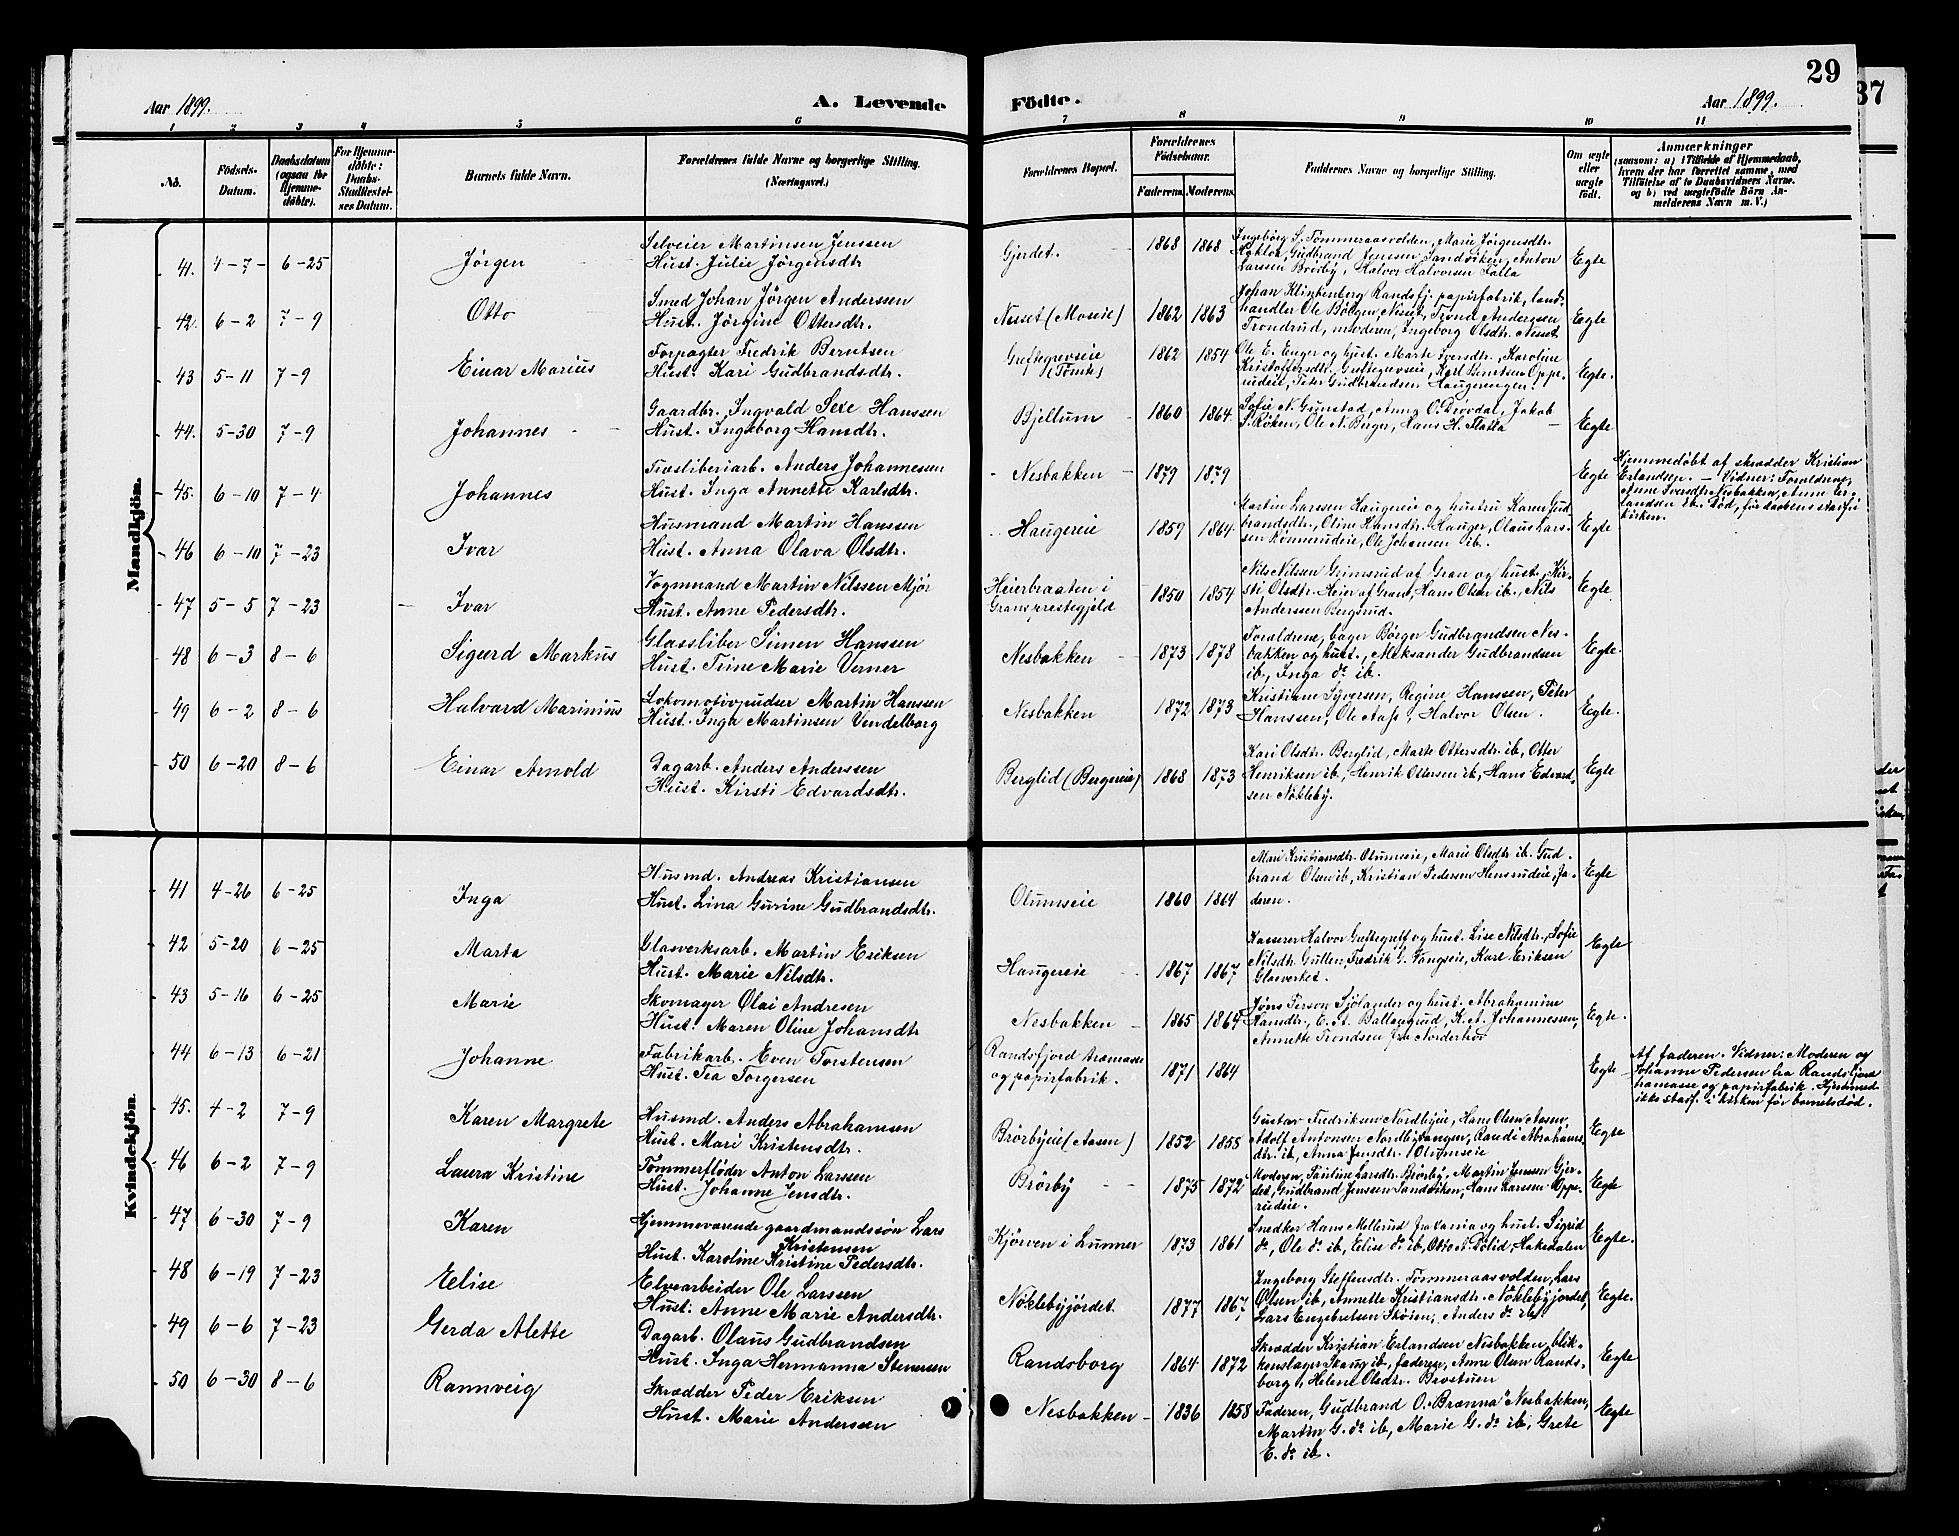 29
37
Aar 1899.
A. Levende
Födte.
Aar 1899.
1 2 3 4 5 6 7 8 9 10 11
No.
Födsels-
Datum.
Daabsdatum
(ogsaa for
Hjemme-
döbte).
For Hjemme-
döbte:
Daabs-
Stadfæstel-
ses Datum.
Barnets fulde Navn.
Forældrenes fulde Navne og borgerlige Stilling.
(Næringsvei.)
Forældrenes Bopæl.
Forældrenes
Födselsaar.
Faderens. Moderens.
Faddernes Navne og borgerlige Stilling.
Om ægte
eller
uægte
födt.
Anmærkninger
(saasom: a) i Tilfælde af Hjemmedaab,
hvem der har forrettet samme, med
Tilföielse af to Daabsvidners Navne.
og b) ved uægtefödte Börn An-
melderens Navn m. V.)
Mandkjön.
41. 4-7- 6-25 Jørgen
Selveier Martinsen Jenssen
Hust. Julie Jörgensdtr
Gjerdet. 1868 1868
Ingebörg S. Tömmeraasvolden, Marie Jörgensdtr.
Gudbrand Jenssen Sandviken, Anton
Larssen Brörby, Halvor Halvorsen Falla
Egte
42. 6-2 7-9 Otto
Smed Johan Jörgen Anderssen
Hust. Jörgine Ottersdtr.
Nesset (Moseie) 1862 1863
Johan Klinkenberg Randsfj. papirfabrik, land-
handler Ole Bölgen, Nesset, Trond Anderssen
Trondrud, moderen, Ingeborg Olsdtr. Nesset
Egte
43 5-11 7-9 Einar Marius
Forpagter Fredrik Berntsen
Hust. Kari Gudbrandsdtr.
Greftegrevseie
(Tomt) 1862 1854
Ole E. Enger og hust. Marte Iversdtr., Karoline
Kristoffersdtr. Greftegrevseie, Karl Berntsen Oppe-
rudeie, Peter Gudbrandsen Haugerengen.
Egte.
44. 5-30 7-9 Johannes
Gaardbr. Ingvald Sexe Hanssen
Hust. Ingeborg Hansdtr.
Bjellum 1860 1864
Sofie N. Gunstad, Anna O. Dövdal, Jakob
S. Röken, Ole N. Berger, Hans H. Flatla
Egte
45. 6-10 7-4 Johannes
Træsliberiarb. Anders Johannesen
Hust. Inga Annette Karlsdtr.
Nesbakken 1879 1879
Egte
Hjemmedøbt af skrædder Kristian
Erlandsen. – Vidner: Forældrene,
Anne Iversdtr. Nesbakken, Anne Er-
landsen ib. Død, før daabens stadf. i
kirken.
46 6-10 7-23 Ivar
Husmand Martin Hanssen
Hust. Anna Olava Olsdtr.
Haugereie 1859 1864
Martin Larssen Haugereie og hustru Karen Gud-
brandsdtr., Oline Hansdtr. Hauger, Olaus Lars-
sen Rönnerudeie, Ole Johansen ib.
Egte
47 5-5 7-23 Ivar
Vognmand Martin Nilssen Mjör
Hust. Anne Pedersdtr.
Heierbraaten i
Grans prestegjeld 1850 1854
Nils Nilssen Grimsrud af Gran og hust., Kir-
sti Olsdtr. Heier af Gran, Hans Olsen ib., Nils
Anderssen Bergsrud.
Egte.
48 6-3 8-6 Sigurd Markus
Glassliber Simen Hanssen
Hust. Trine Marie Verner
Nesbakken 1873 1878
Forældrene, bager Börger Gudbrandsen Nes-
bakken og hust., Aleksander Gudbrandsen
ib., Inga do ib.
Egte.
49 6-2 8-6 Halvard Marinius
Lokomotivpudser Martin Hanssen
Hust. Inga Martinsen Vendelborg
Nesbakken 1872 1873
Kristiane Syversen, Regine Hanssen, Peter
Hanssen, Ole Aass, Halvor Olsen.
Egte.
50 6-20 8-6 Einar Arnold
Dagarb. Anders Anderssen
Hust. Kirsti Edvardsdtr.
Berglid (Bergereie) 1868 1873
Kari Olsdtr. Berglid, Marte Ottersdtr. ib., Otter
Henriksen ib., Henrik Ottersen ib., Hans Edvard-
sen Nökleby.
Egte
Kvindekjön.
41 4-26 6-25 Inga
Husmd. Andreas Kristiansen
Hust. Lina Gurine Gudbrandsdtr.
Olumseie 1860 1864
Mari Kristiansdtr. Olumseie, Marie Olsdtr. ib. Gud-
brand Olsen ib., Kristian Pedersen Hensrudeie, fa-
deren.
Egte
42 5-20 6-25 Marta
Glasverksarb. Martin Eriksen
Hust. Marie Nilsdtr.
Haugereie 1867 1867
Kasserer Halvor Greftegreff og hust. Lise Nilsdtr., Sofie
Nilsdtr. Gullen, Fredrik S. Vangseie, Karl Eriksen
Glasverket.
Egte
43 5-16 6-25 Marie
Skomager Olai Andresen
Hust. Maren Oline Johansdtr
Nesbakken 1865 1864
Jöns Person Sjölander og hust. Abrahamine
Hansdtr., E. A. Ballangrud, K. A. Johannessen,
Annette Trondsen fra Norderhov
Egte.
44 6-13 6-21 Johanne
Fabrikarb. Even Torstensen
Hust. Tea Torgersen
Randsfjord træmasse
og papirfabrik. 1871 1864
Egte
Af faderen. Vidner: Moderen og
Johanne Pedersen fra Randsfjord
træmasse og papirfabrik. Hjemmed.
ikke stadf. i kirken før barnets død.
45. 4-2 7-9 Karen Margrete
Husmd. Anders Abrahamsen
Hust. Mari Kristensdtr.
Brörbyeie (Aasen) 1852 1858
Gustav Fredriksen Nordbyeie, Hans Olsen Aasen,
Adolf Antonsen Nordbytangen, Randi Abrahams-
dtr. ib., Anna Jensdtr. Olumseie
Egte
46 6-2 7-9 Laura Kristine
Tömmerflöder Anton Larssen
Hust. Johanne Jensdtr.
Brörby 1875 1872
Moderen, Pauline Larsdtr. Brörby, Martin Jenssen Gjer-
det, Gudbrand Jenssen Sandviken, Hans Larssen Oppe-
rudeie.
Egte
47 6-30 7-9 Karen
Hjemmeværende gaardmandssön Lars
Kristensen
Hust. Karoline Kristine Pedersdtr.
Kjörven i Lunner 1873 1861
Snedker Hans Mellerud fra Vania og hust. Sigrid
do, Ole do ib, Eelise do ib., Otto A. Dölid, Hakedalen
Egte.
48 6-19 7-23 Eelise
Elvearbeider Ole Larssen
Hust. Anne Marie Andersdtr.
Nöklebyjordet 1877 1867
Ingeborg Steffensdtr. Tömmeraasvolden, Lars
Olsen ib, Annette Kristiansdtr. Nöklebyjordet,
Lars Engebretsen Skösen, Anders do ib.
Egte.
49 6-6 7-23 Gerda Alette
Dagarb. Olaus Gudbrandsen
Hust. Inga Hermanna Stenersen
Randsborg 1864 1872
Skrædder Kristian Erlandsen Nesbakken, blik-
kenslager Skaug ib., faderen, Anne Olsen Rands-
borg, Helene Olsdtr. Brostuen
Egte
50 6-30 8-6 Rannveig
Skrædder Peder Eriksen
Hust. Marie Anderssen
Nesbakken 1836 1858
Faderen, Gudbrand O. Brænna Nesbakken,
Martin G. do ib, Marie G. do ib, Grete
E. do ib.
Egte